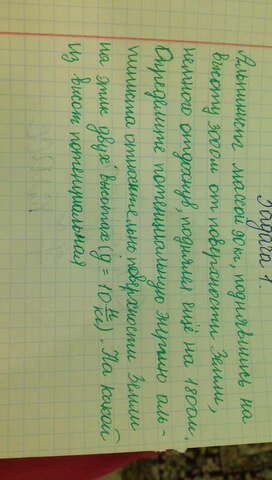 Задача 1.
Альпинист массой 90кг, поднявшись на
высоту 300м от поверхности Земли,
немного отдохнув, поднялся ещё на 180м.
Определите потенциальную энергию аль-
пиниста относительно поверхности Земли
на этих двух высотах (g = 10 Н/кг). На какой
из высот потенциальная